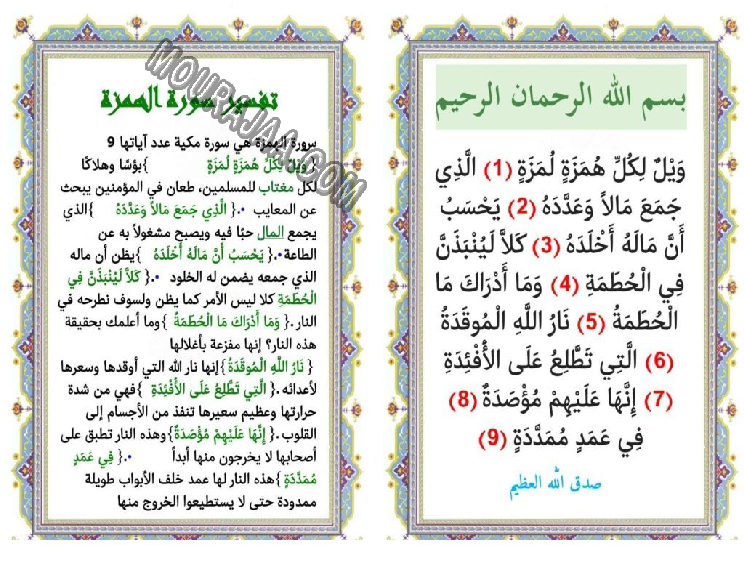 بسم الله الرحمان الرحيم
وَيْلٌ لِكُلِّ هُمَزَةٍ لُمَزَةٍ (1) الَّذِي
جَمَعَ مَالاً وَعَدَّدَهُ (2) يَحْسَبُ
أَنَّ مَالَهُ أَخْلَدَهُ (3) كَلاَّ لَيُنْبَذَنَّ
فِي الْحُطَمَةِ (4) وَمَا أَدْرَاكَ مَا
الْحُطَمَةُ (5) نَارُ اللَّهِ الْمُوقَدَةُ
(6) الَّتِي تَطَّلِعُ عَلَى الأَفْئِدَةِ
(7) إِنَّهَا عَلَيْهِمْ مُؤْصَدَةٌ (8)
فِي عَمَدٍ مُمَدَّدَةٍ (9)
صدق الله العظيم
تفسير سورة الهمزة
سورة الهمزة هي سورة مكية عدد آياتها 9
{ وَيْلٌ لِكُلِّ هُمَزَةٍ لُمَزَةٍ }بؤسًا وهلاكًا
لكل مغتاب للمسلمين، طعان في المؤمنين يبحث
عن المعايب •.{ الَّذِي جَمَعَ مَالاً وَعَدَّدَهُ }الذي
يجمع المال حبًا فيه ويصبح مشغولاً به عن
الطاعة•.{ يَحْسَبُ أَنَّ مَالَهُ أَخْلَدَهُ }يظن أن ماله
الذي جمعه يضمن له الخلود •.{ كَلاَّ لَيُنْبَذَنَّ فِي
الْحُطَمَةِ كلا ليس الأمر كما يظن ولسوف نطرحه في
النار.{ وَمَا أَدْرَاكَ مَا الْحُطَمَةُ }وما أعلمك بحقيقة
هذه النار؟ إنها مفزعة بأغلالها
{ نَارُ اللَّهِ الْمُوقَدَةُ}إنها نار الله التي أوقدها وسعرها
لأعدائه.{ الَّتِي تَطَّلِعُ عَلَى الأَفْئِدَةِ }فهي من شدة
حرارتها وعظيم سعيرها تنفذ من الأجسام إلى
القلوب.{ إِنَّهَا عَلَيْهِمْ مُؤْصَدَةٌ}وهذه النار تطبق على
أصحابها لا يخرجون منها أبداً •.{ فِي عَمَدٍ
مُمَدَّدَةٍ }هذه النار لها عمد خلف الأبواب طويلة
ممدودة حتى لا يستطيعوا الخروج منها
MOURAJAA.COM